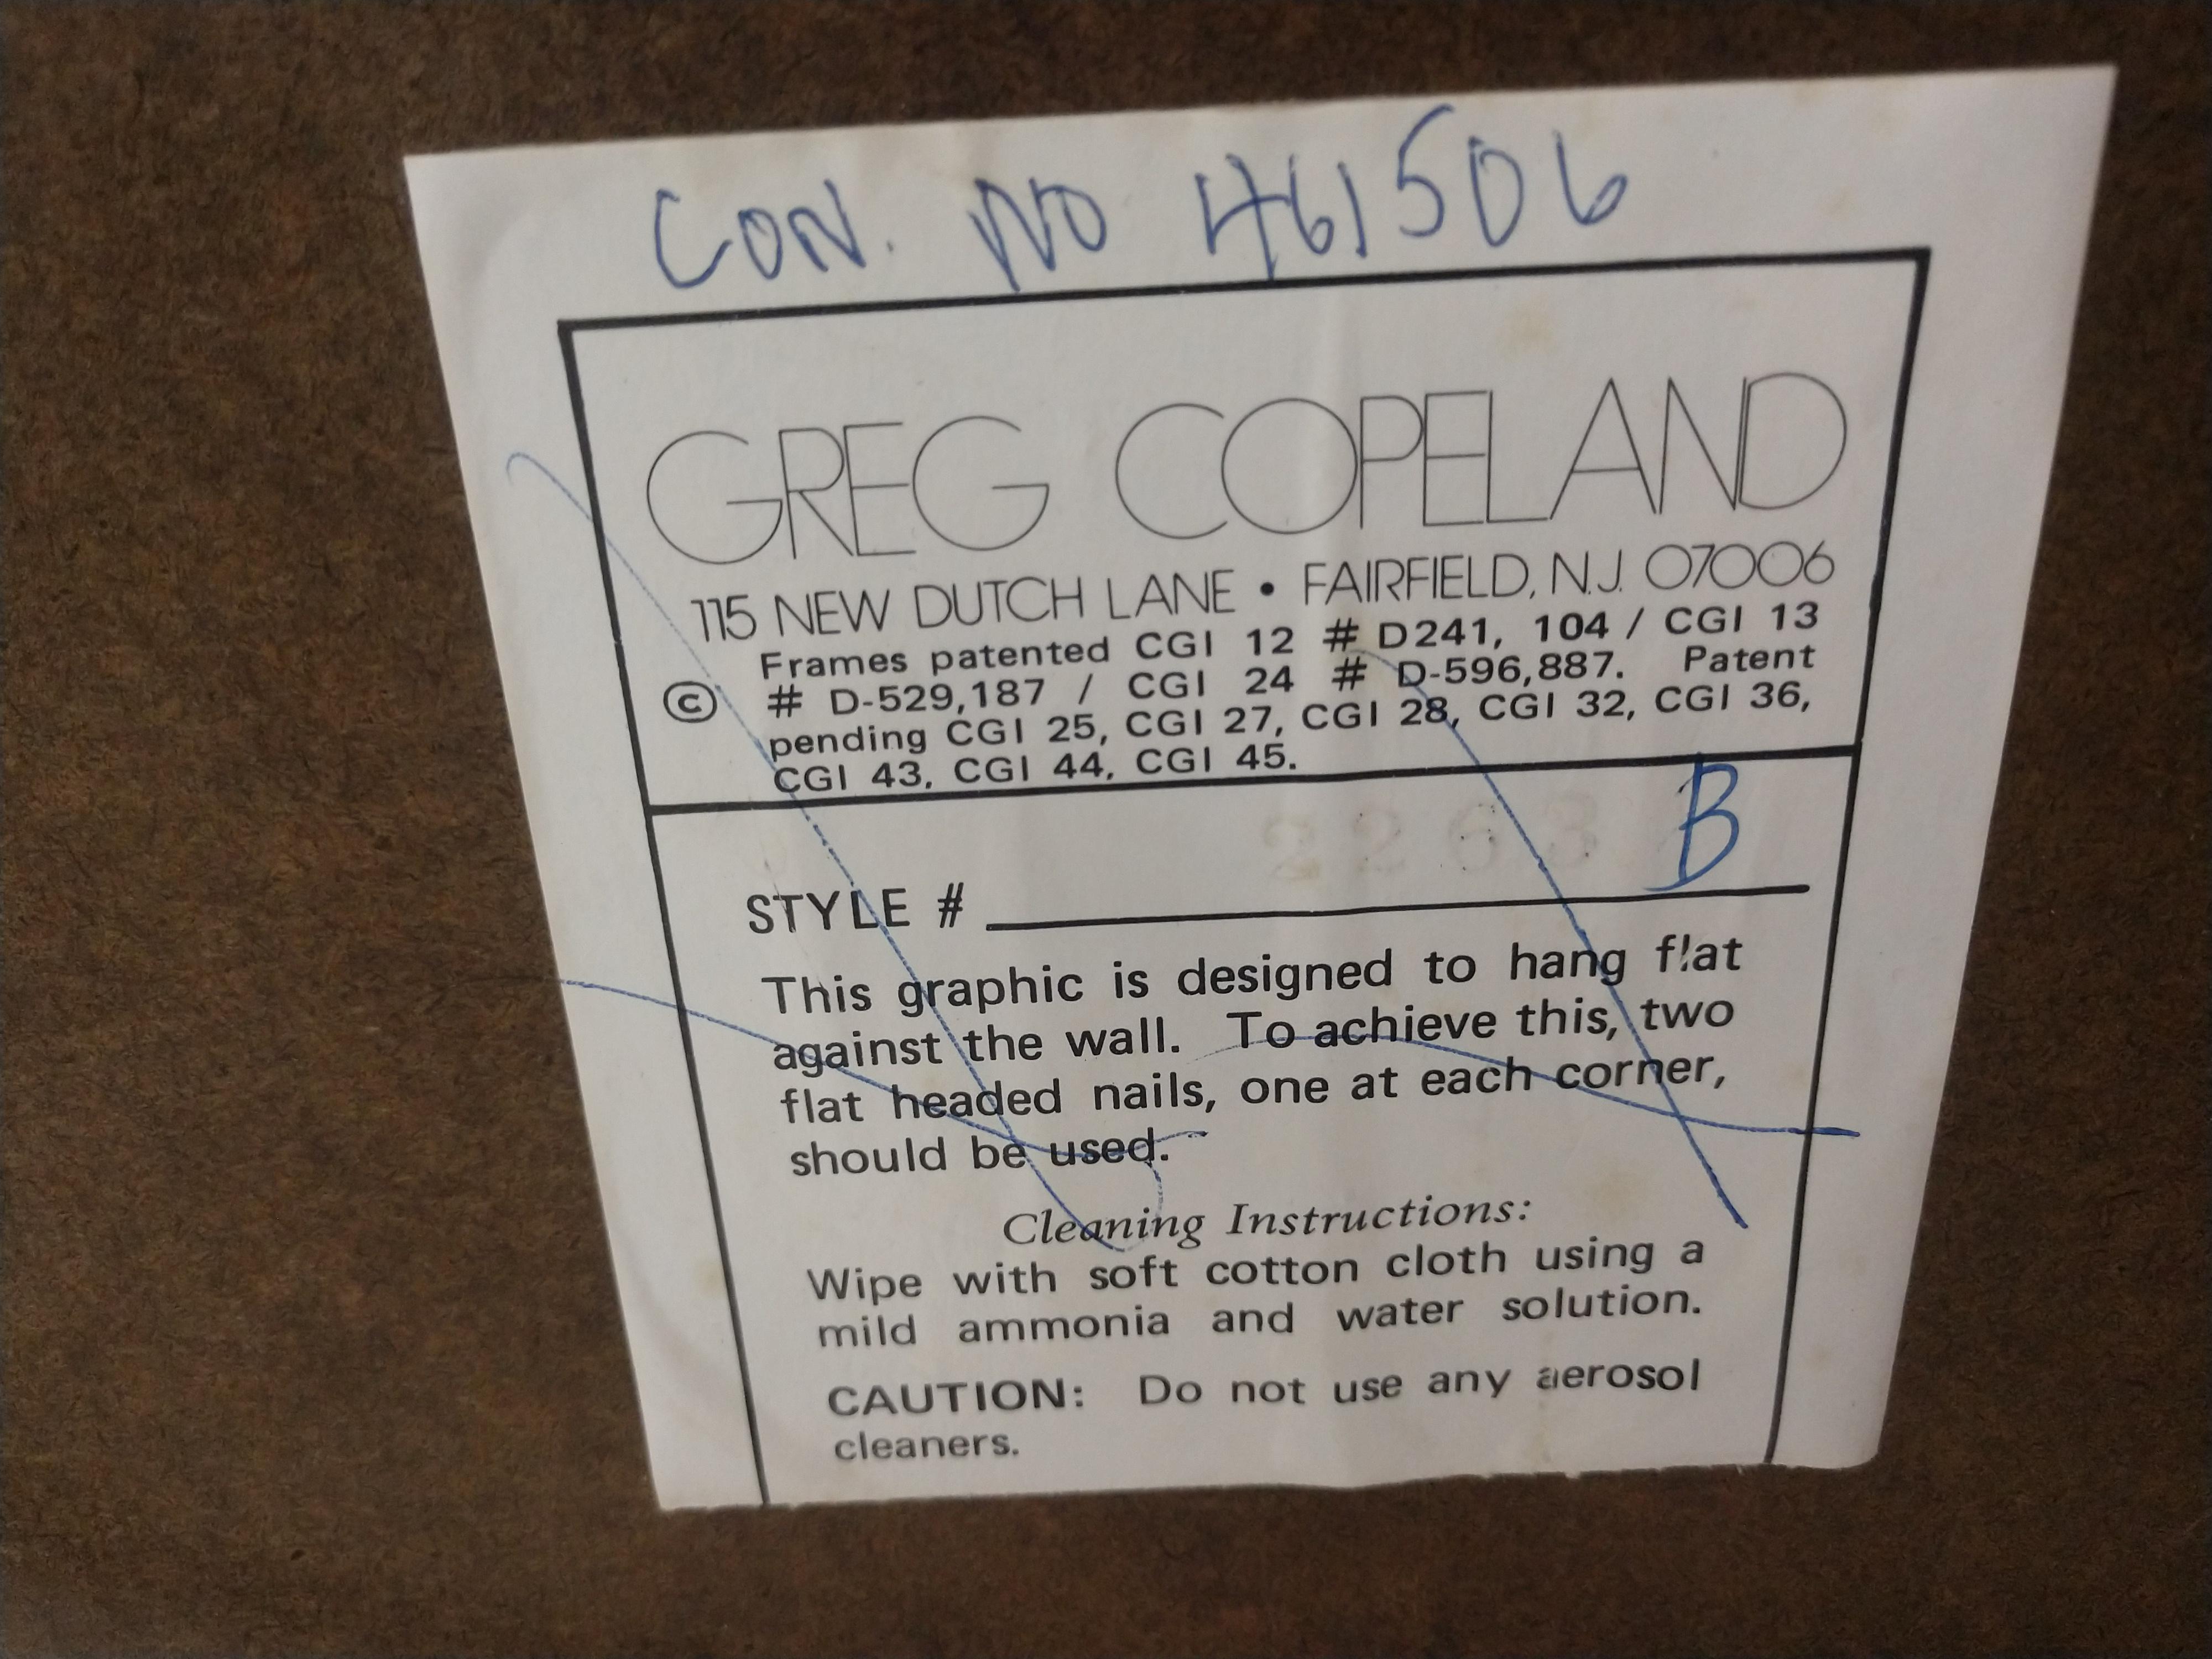 CON. NO 461506
GREG COPELAND
115 NEW DUTCH LANE • FAIRFIELD, N.J. 07006
Frames patented CGI 12 # D241, 104 / CGI 13
© # D-529,187 / CGI 24 # D-596,887. Patent
pending CGI 25, CGI 27, CGI 28, CGI 32, CGI 36,
CGI 43, CGI 44, CGI 45.
B
STYLE #
This graphic is designed to hang flat
against the wall. To achieve this, two
flat headed nails, one at each corner,
should be used.
Cleaning Instructions:
Wipe with soft cotton cloth using a
mild ammonia and water solution.
CAUTION: Do not use any aerosol
cleaners.